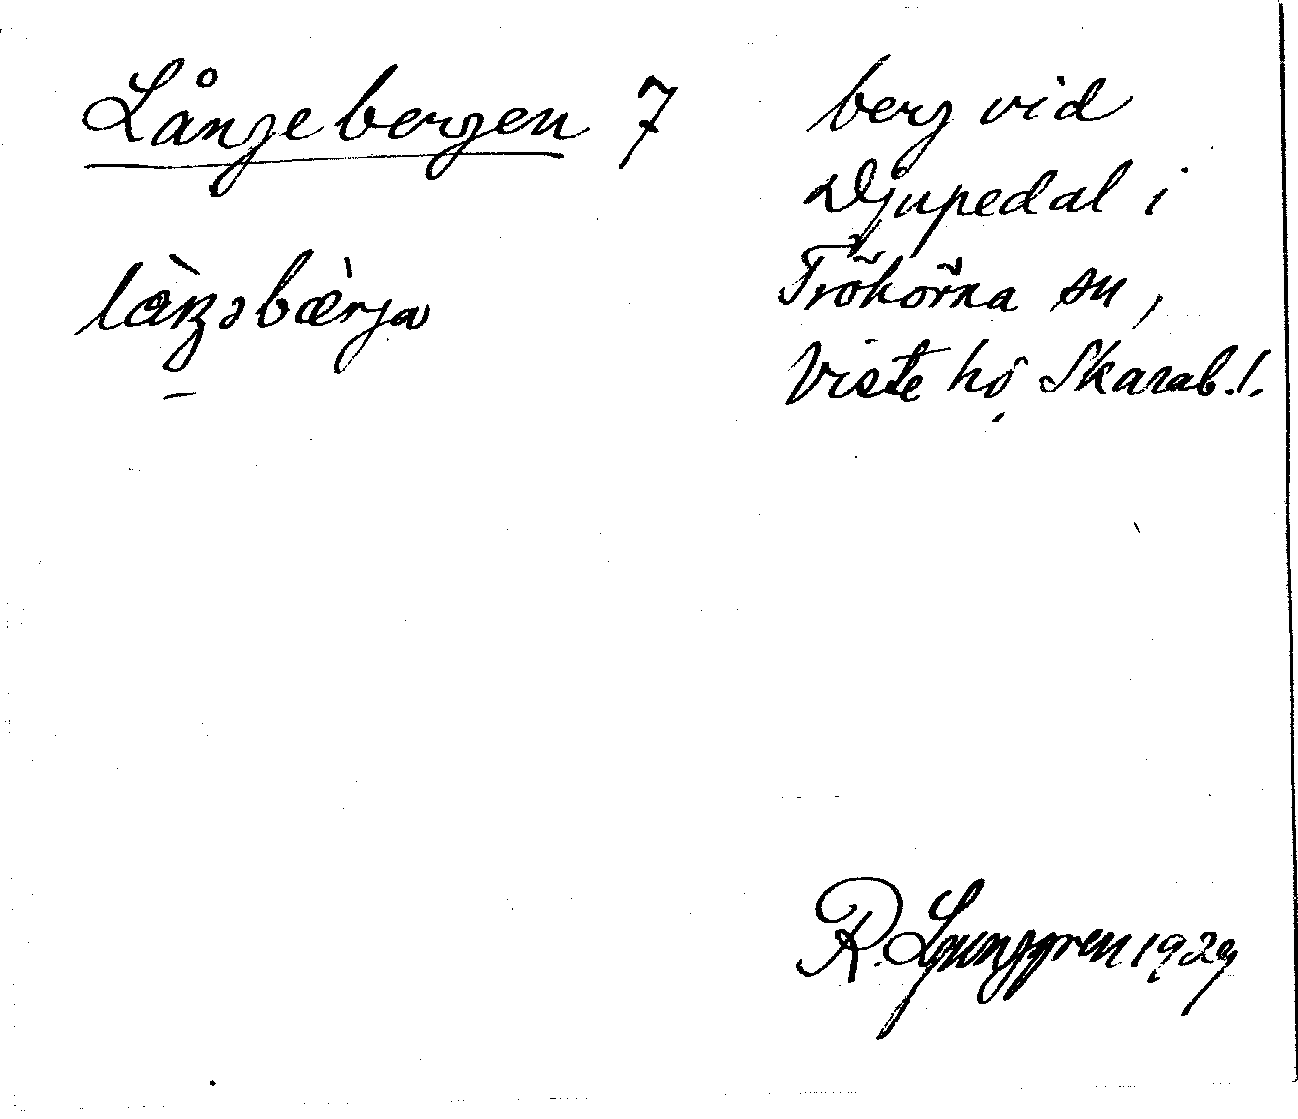 Långebergen 7
låŋəbæ̀rja
berg vid
Djupedal i
Trökörna sn,
Viste hd Skarab.l.
R. Ljunggren 1929